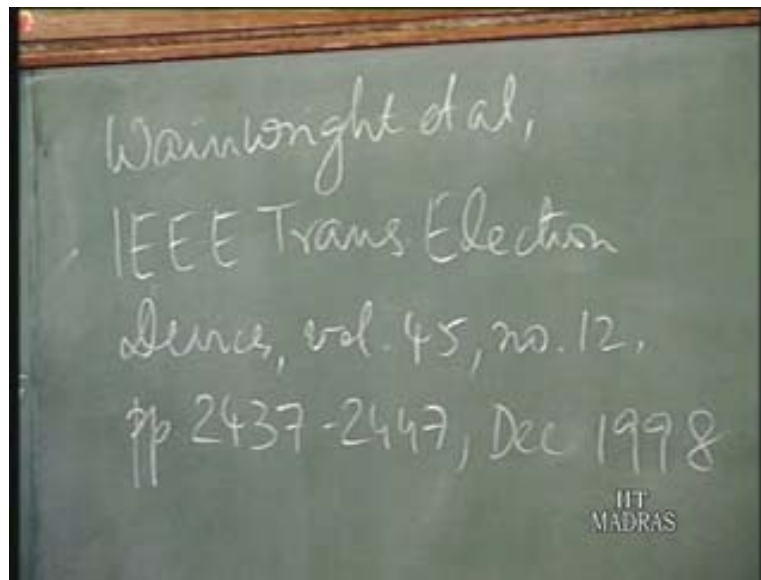 Wainwright et al,
IEEE Trans. Electron
Devices, vol. 45, no. 12,
pp 2437-2447, Dec 1998
IIT
MADRAS